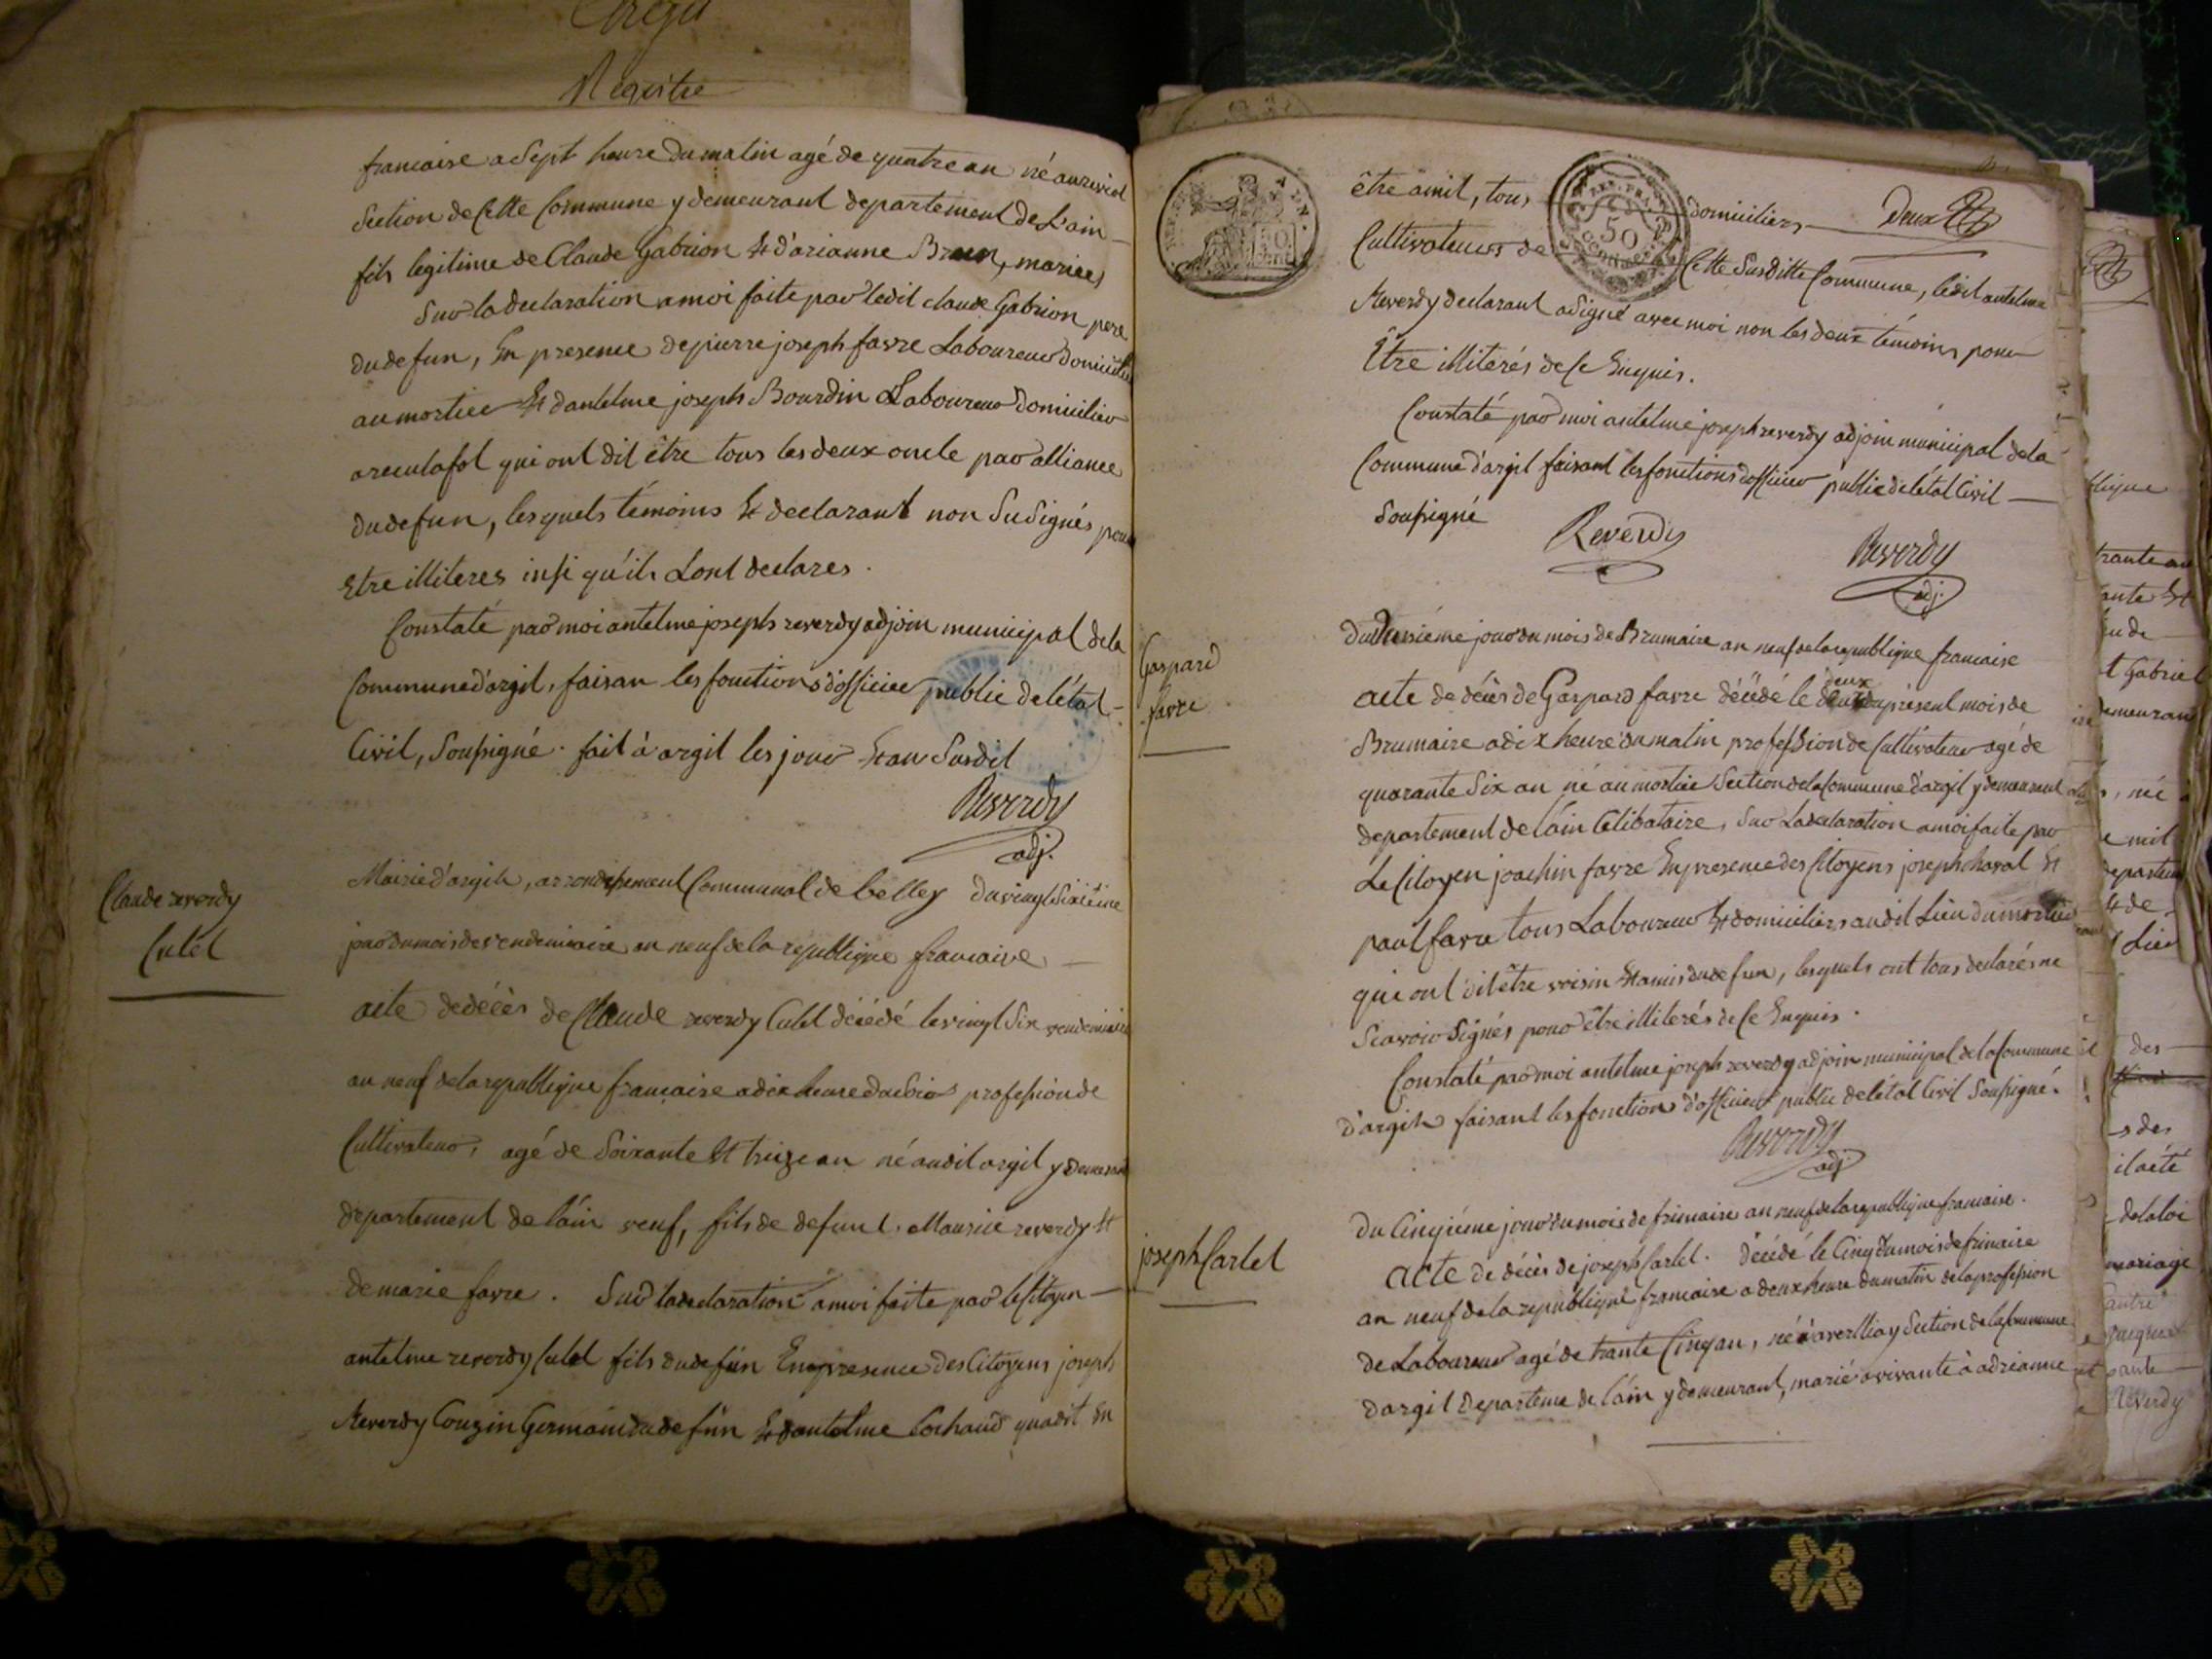 Registre
francaise a Sept heure du matin agé de quatre an né au
Section de Cette Commune y demeurant departement de L'ain
fils legitime de Claude Gabrion Et d'arianne mariees
Sur la declaration a moi faite par ledit claude Gabrion pere
du defun, En presence de pierre joseph favre Laboureur domicilier
au mortier Et dantelme joseph Bourdin Laboureur domicilier
qui ont dit être tous les deux oncle par alliance
du defun, lesquels témoins Et declarant non Su Signés pour
Etre illiteres insi qu'ils Lont declares.
Constaté par moi antelme joseph reverdy adjoin municipal dela
Commune d'argil, faisan les fonctions d'officier public de létat
Civil, Soussigné. fait à argil les jour Et an Susdit
Reverdy
adj.
Claude reverdy
Culet
Mairie d'argil, arrondissement Communal de belley du vingt Sixieme
jour du mois de vendemiaire an neuf de la republique francaise
acte de décès de Claude reverdy Culet décédé le vingt Six vendemiaire
an neuf de la republique française a dix heure du Soir profession de
Cultivateur, agé de Soixante Et treize an né audit argil y demeurant
departement de láin veuf, fils de defunt Maurice reverdy Et
de marie favre. Sur la declaration a moi faite par le Citoyen
antelme reverdy Culet fils du defun En presence des Citoyens joseph
Reverdy Couzin Germain du defun Et dantelme Cochaud qua dit En
être amit, tous domiciliers Deux
Cultivateurs de Cette Susditte Commune, ledit antelme
Reverdy declarant a Signé avec moi non les deux témoins pour
Être illitérés de Ce Enquis.
Constaté par moi antelme joseph reverdy adjoin municipal de la
Commune d'argil faisant les fonctions d'officier public de létat Civil
Soussigné
Reverdy
Reverdy
adj.
50
Gaspard
favre
jour du mois de Brumaire an neuf de la republique francaise
deux
acte de décès de Gaspard favre décédé le du présent mois de
Brumaire a dix heure du matin profession de Cultivateur agé de
quarante Six an né au mortier Section de la Commune d'argil y demeurant
departement de láin Célibataire, Sur La declaration a moi faite par
Le Citoyen joachin favre En presence des Citoyens joseph Et
paul favre tous Laboureur Et domiciliers audit Lieu du mortier
qui ont dit être voisin Et amis du defun, lesquels ont tous declarés ne
Scavoir Signés pour être illiterés de Ce Enquis.
Constaté par moi antelme joseph reverdy adjoin municipal de la Commune
d'argil faisant les fonctions d'officier public de létat Civil Soussigné.
Reverdy
adj.
joseph Carlet
Du Cinqiéme jour du mois de frimaire an neuf de la republique francaise.
acte de décès de joseph Carlet. décédé le Cinq du mois de frimaire
an neuf de la republique francaise a deux heure du matin de la profession
de Laboureur agé de trante Cinq an, né à averlliay Section de la Commune
dargil Departeme de láin y demeurant, marié a vivante à adrianne